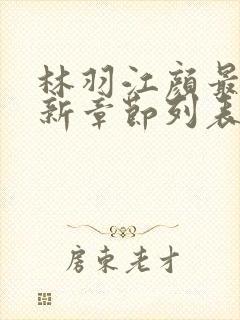 林羽江颜最
新章节列表
房东老才